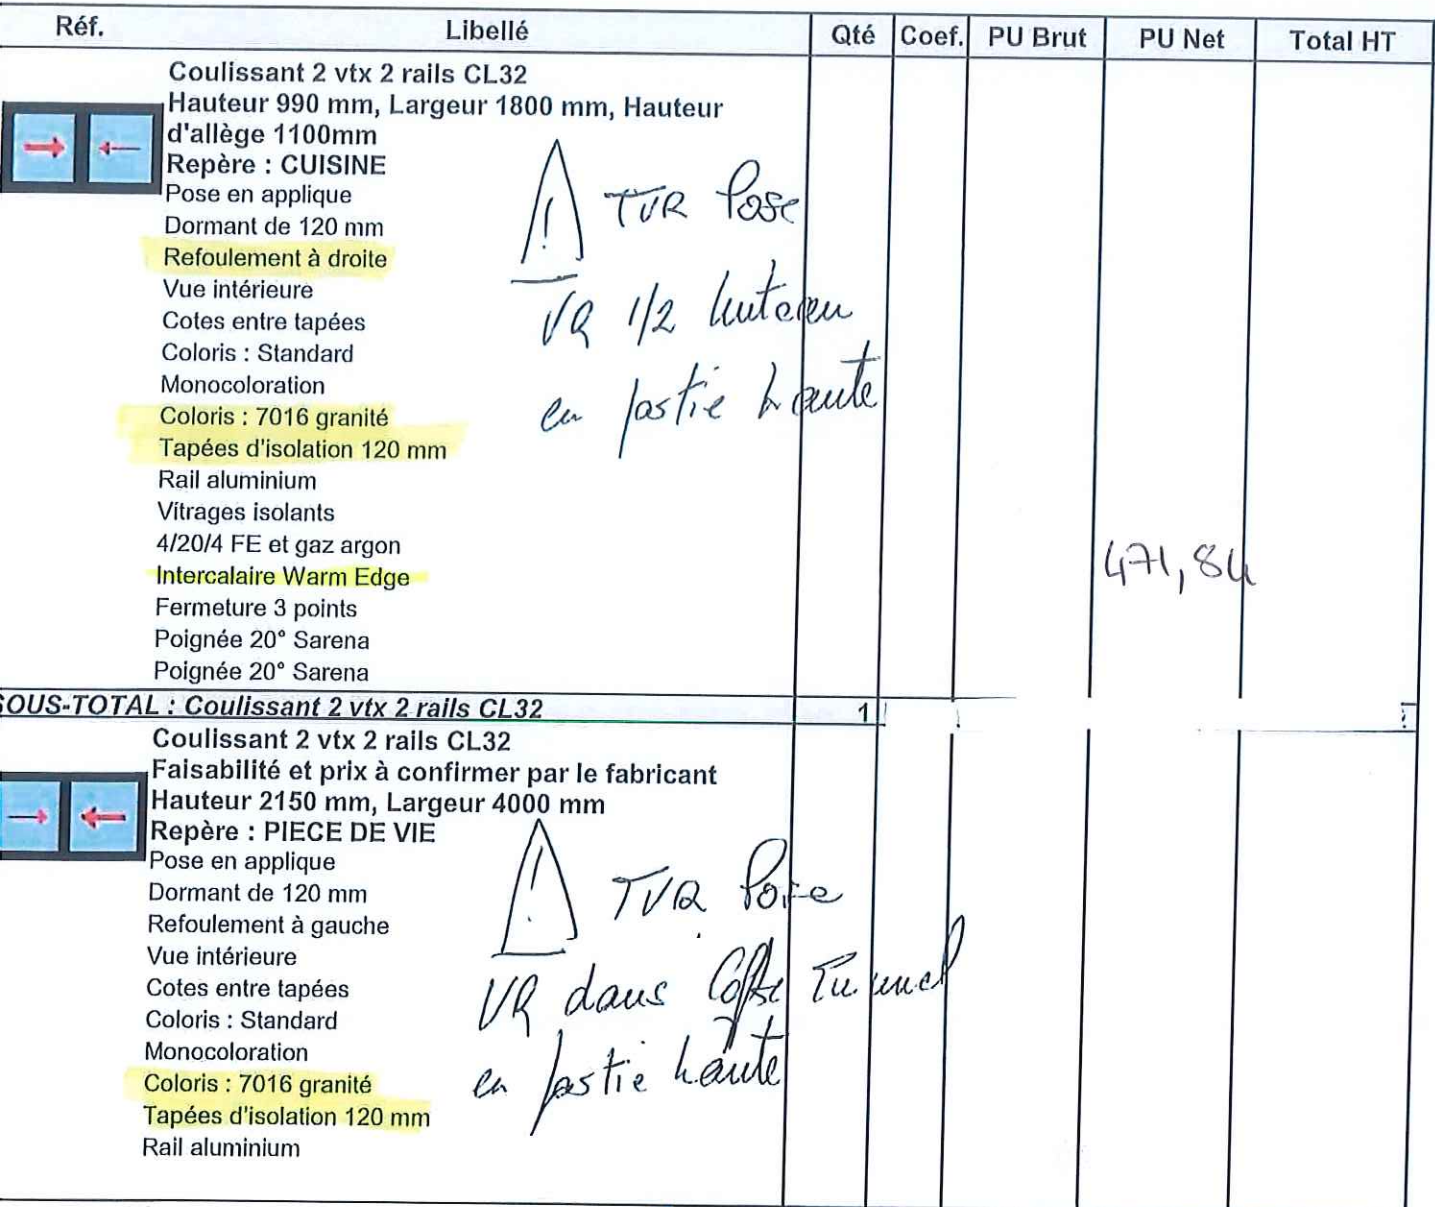 Réf. Libellé Qté Coef. PU Brut PU Net Total HT
Coulissant 2 vtx 2 rails CL32
Hauteur 990 mm, Largeur 1800 mm, Hauteur
d'allège 1100mm
Repère : CUISINE
Pose en applique
Dormant de 120 mm
Refoulement à droite
Vue intérieure
Cotes entre tapées
Coloris : Standard
Monocoloration
Coloris : 7016 granité
Tapées d'isolation 120 mm
Rail aluminium
Vitrages isolants
4/20/4 FE et gaz argon
Intercalaire Warm Edge
Fermeture 3 points
Poignée 20° Sarena
Poignée 20° Sarena
! TVR Pose
VR 1/2 linteau
en partie haute
471,84
SOUS-TOTAL : Coulissant 2 vtx 2 rails CL32 1
Coulissant 2 vtx 2 rails CL32
Faisabilité et prix à confirmer par le fabricant
Hauteur 2150 mm, Largeur 4000 mm
Repère : PIECE DE VIE
Pose en applique
Dormant de 120 mm
Refoulement à gauche
Vue intérieure
Cotes entre tapées
Coloris : Standard
Monocoloration
Coloris : 7016 granité
Tapées d'isolation 120 mm
Rail aluminium
! TVR Pose
VR dans Coffre Tunnel
en partie haute